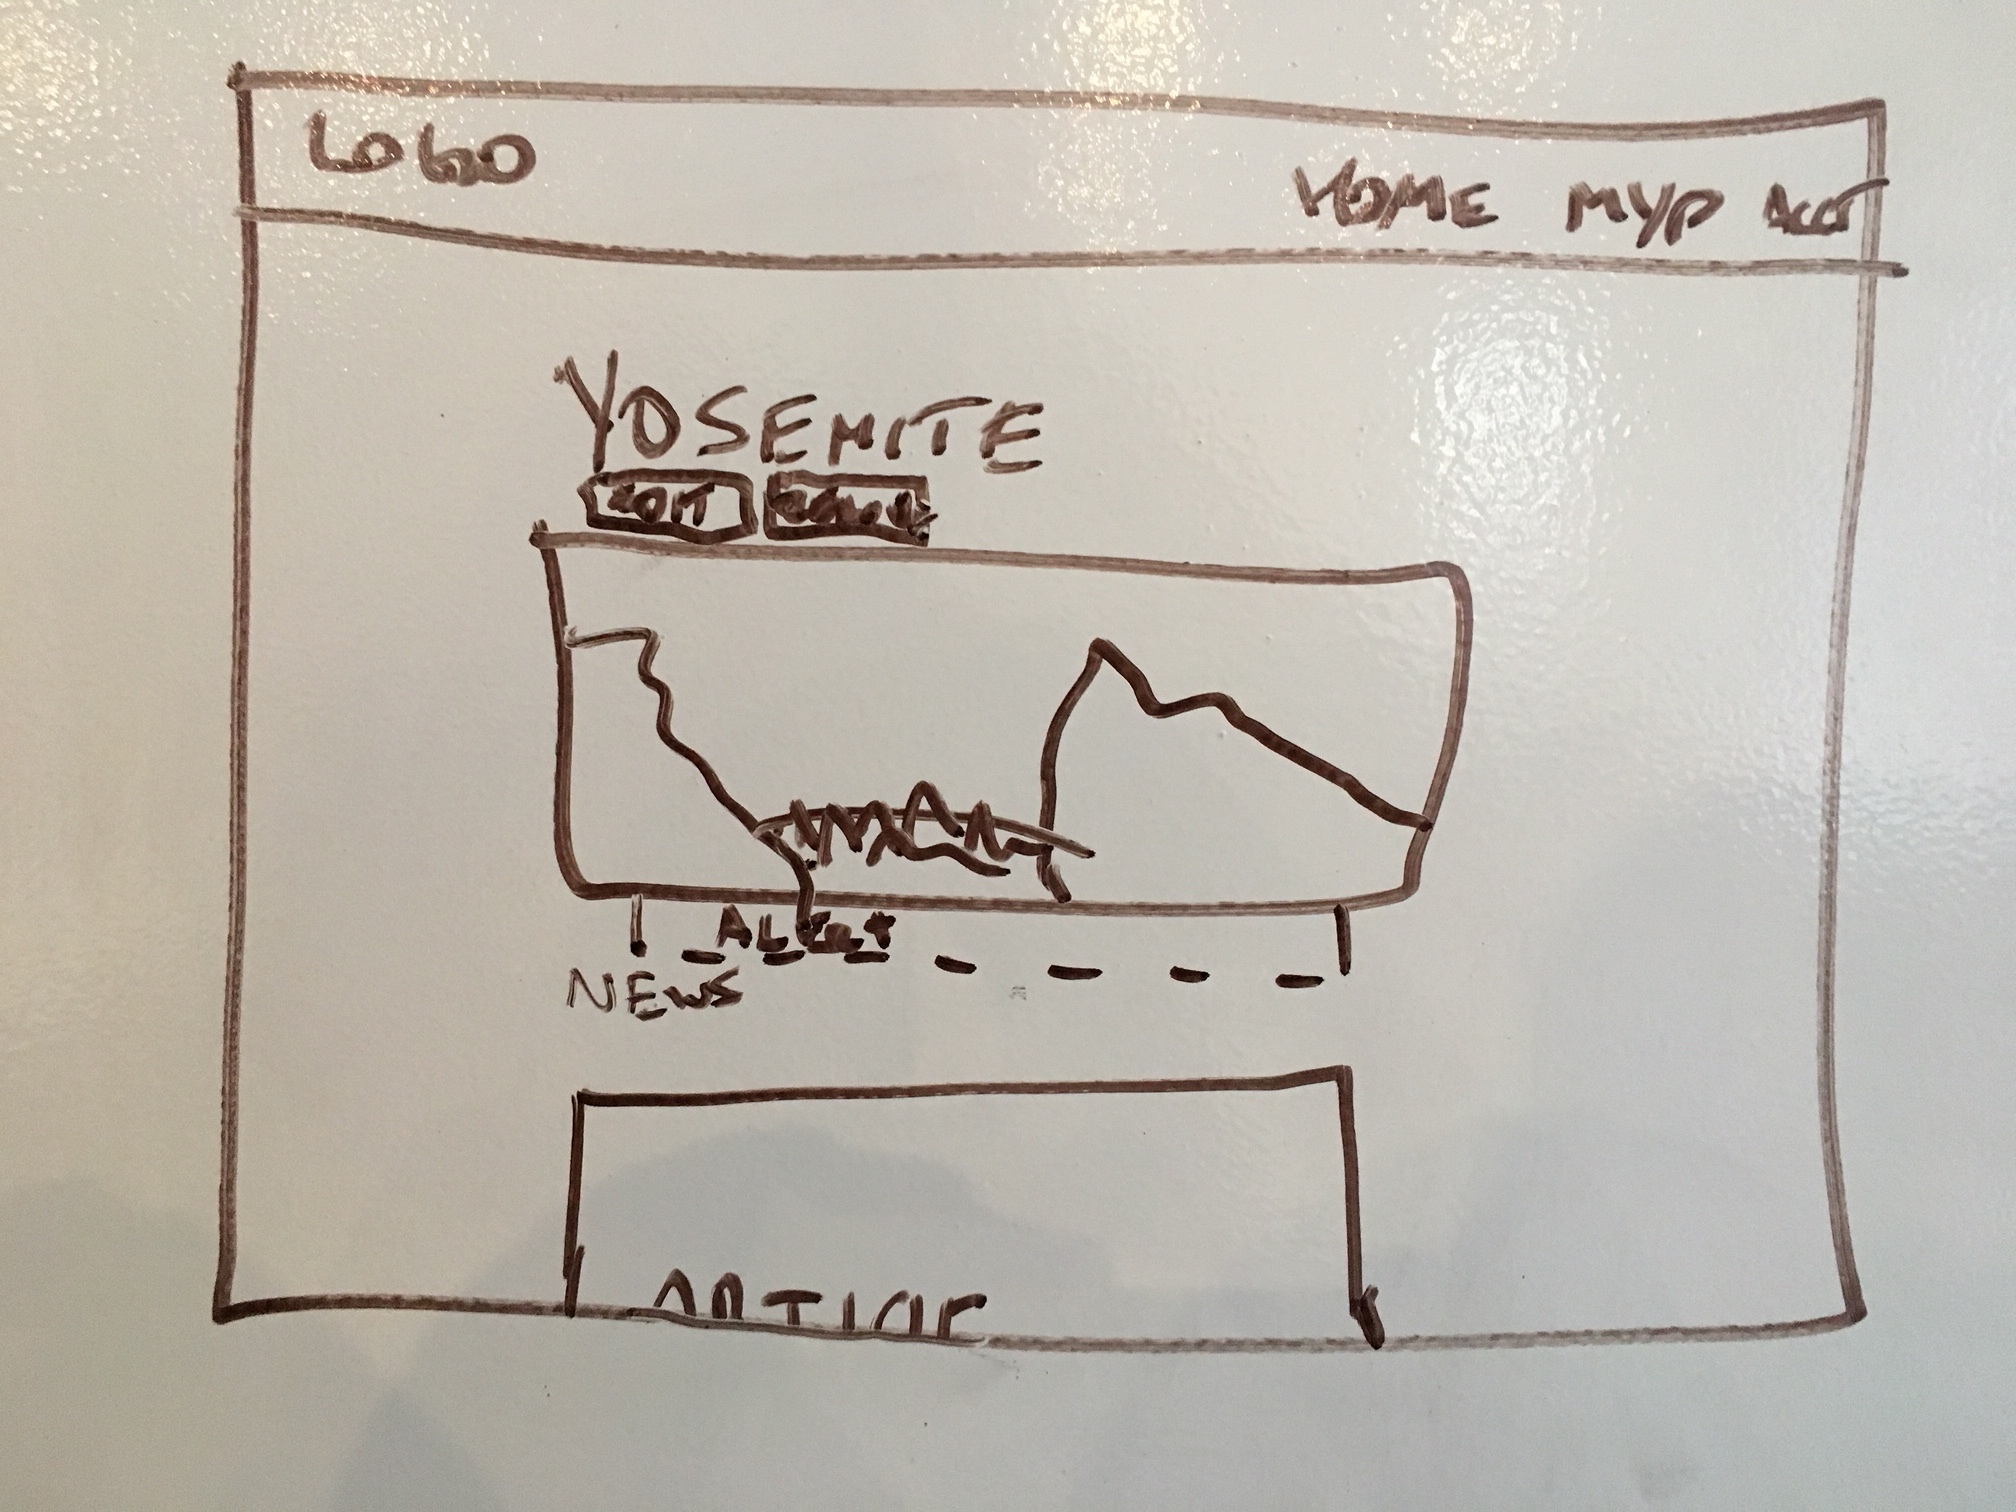 LOGO
HOME MYP ACCT
YOSEMITE
EDIT
ALERT
NEWS
ARTICLE